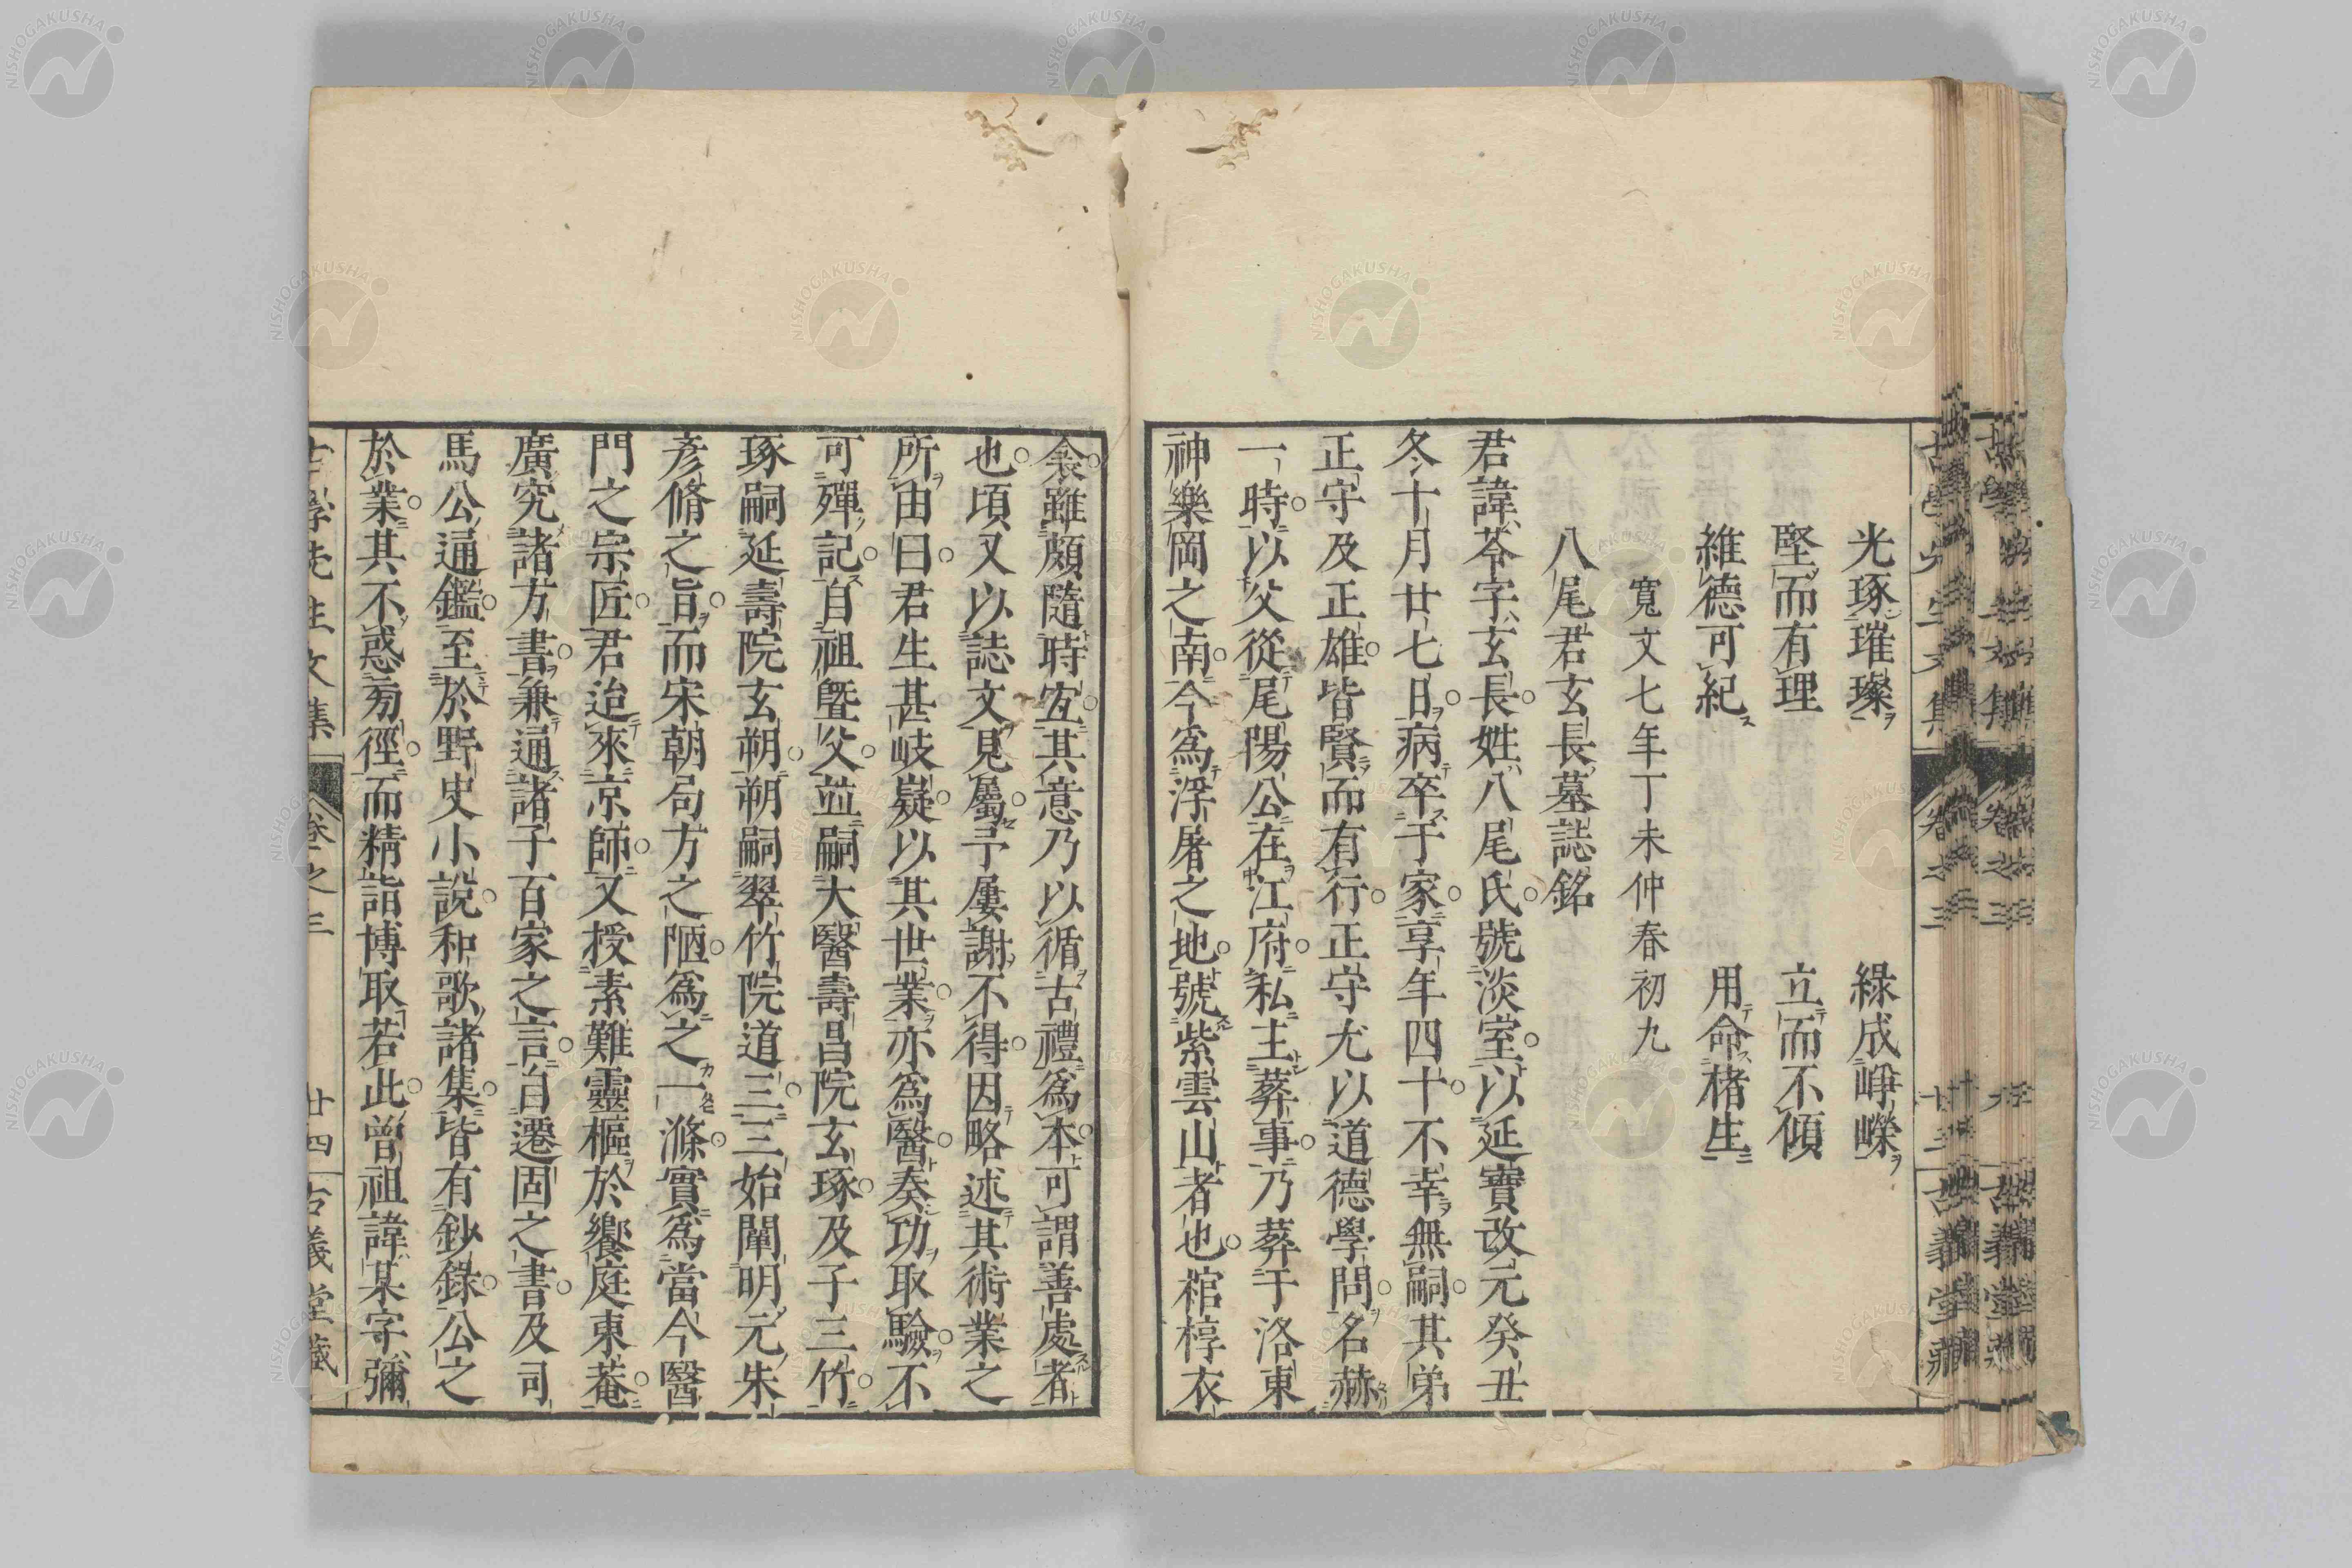 光琢璀璨　綠成崢嶸
堅而有理　立而不傾
維德可紀　用命楮生
寬文七年丁未仲春初九
八尾君玄長墓誌銘
君諱苓字玄長姓八尾氏號淡室以延寶改元癸丑
冬十月廿七日病卒于家享年四十不幸無嗣其弟
正守及正雄皆賢而有行正守尤以道德學問名赫
一時以父從尾陽公在江府私主葬事乃葬于洛東
神樂岡之南今爲浮屠之地號紫雲山者也棺椁衣
衾雖頗隨時宐其意乃以循古禮爲本可謂善處者
也頃又以誌文見屬予屢謝不得因略述其術業之
所由曰君生甚岐嶷以其世業亦爲醫奏功取驗不
可殫記自祖曁父並嗣大醫壽昌院玄琢及子三竹
琢嗣延壽院玄朔朔嗣翠竹院道三三始闡明元朱
彥脩之旨而宋朝局方之陋爲之一滌實爲當今醫
門之宗匠君迨來京師又授素難靈樞於饗庭東菴
廣究諸方書兼通諸子百家之言自遷固之書及司
馬公通鑑至於野史小說和歌諸集皆有鈔錄公之
於業其不惑旁徑而精詣博取若此曾祖諱某字彌
古學先生文集　卷之三　廿四　古義堂藏